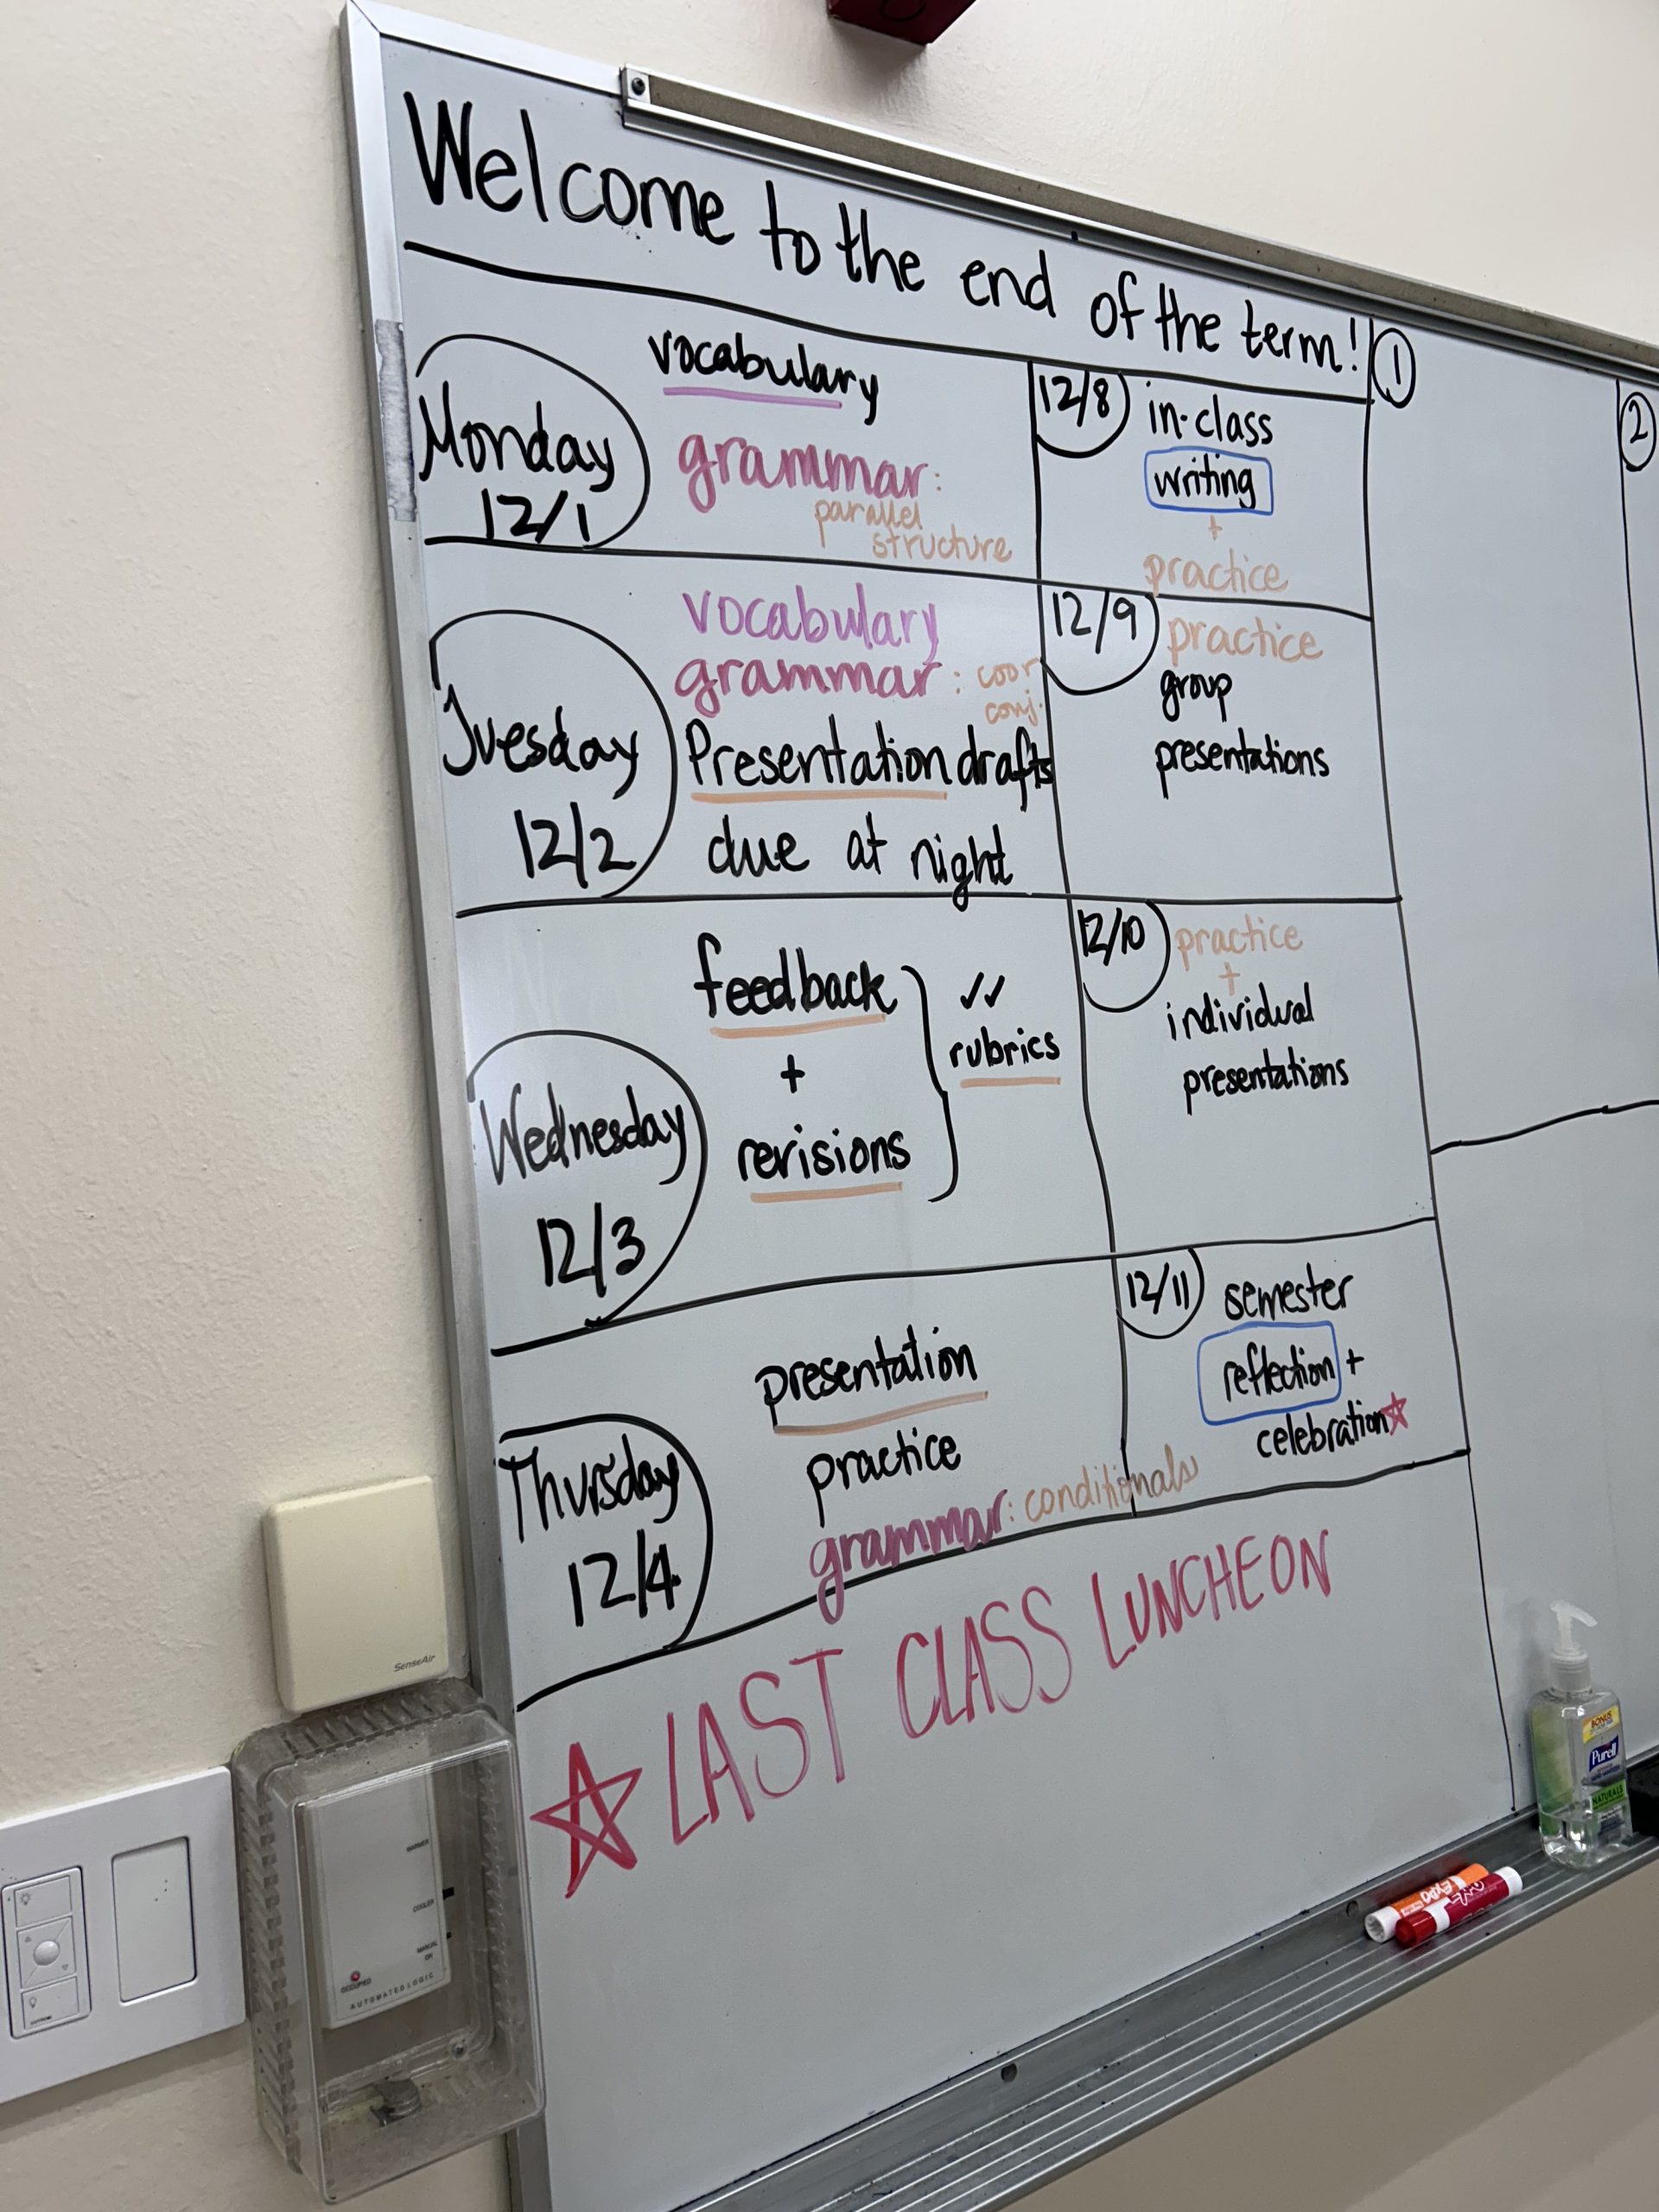 Welcome to the end of the term!
Monday
12/1
vocabulary
grammar:
parallel
structure
12/8
in-class
writing
+
practice
Tuesday
12/2
vocabulary
grammar: coor
conj.
Presentation drafts
due at night
12/9
practice
group
presentations
Wednesday
12/3
feedback
+
revisions
✓✓
rubrics
12/10
practice
+
individual
presentations
Thursday
12/4
presentation
practice
grammar: conditionals
12/11
semester
reflection +
celebration☆
☆ LAST CLASS LUNCHEON
1
2
SenseAir
WARMER
COOLER
MANUAL
ON
OCCUPIED
AUTOMATED LOGIC
BONUS
Purell
NATURALS
EXPO